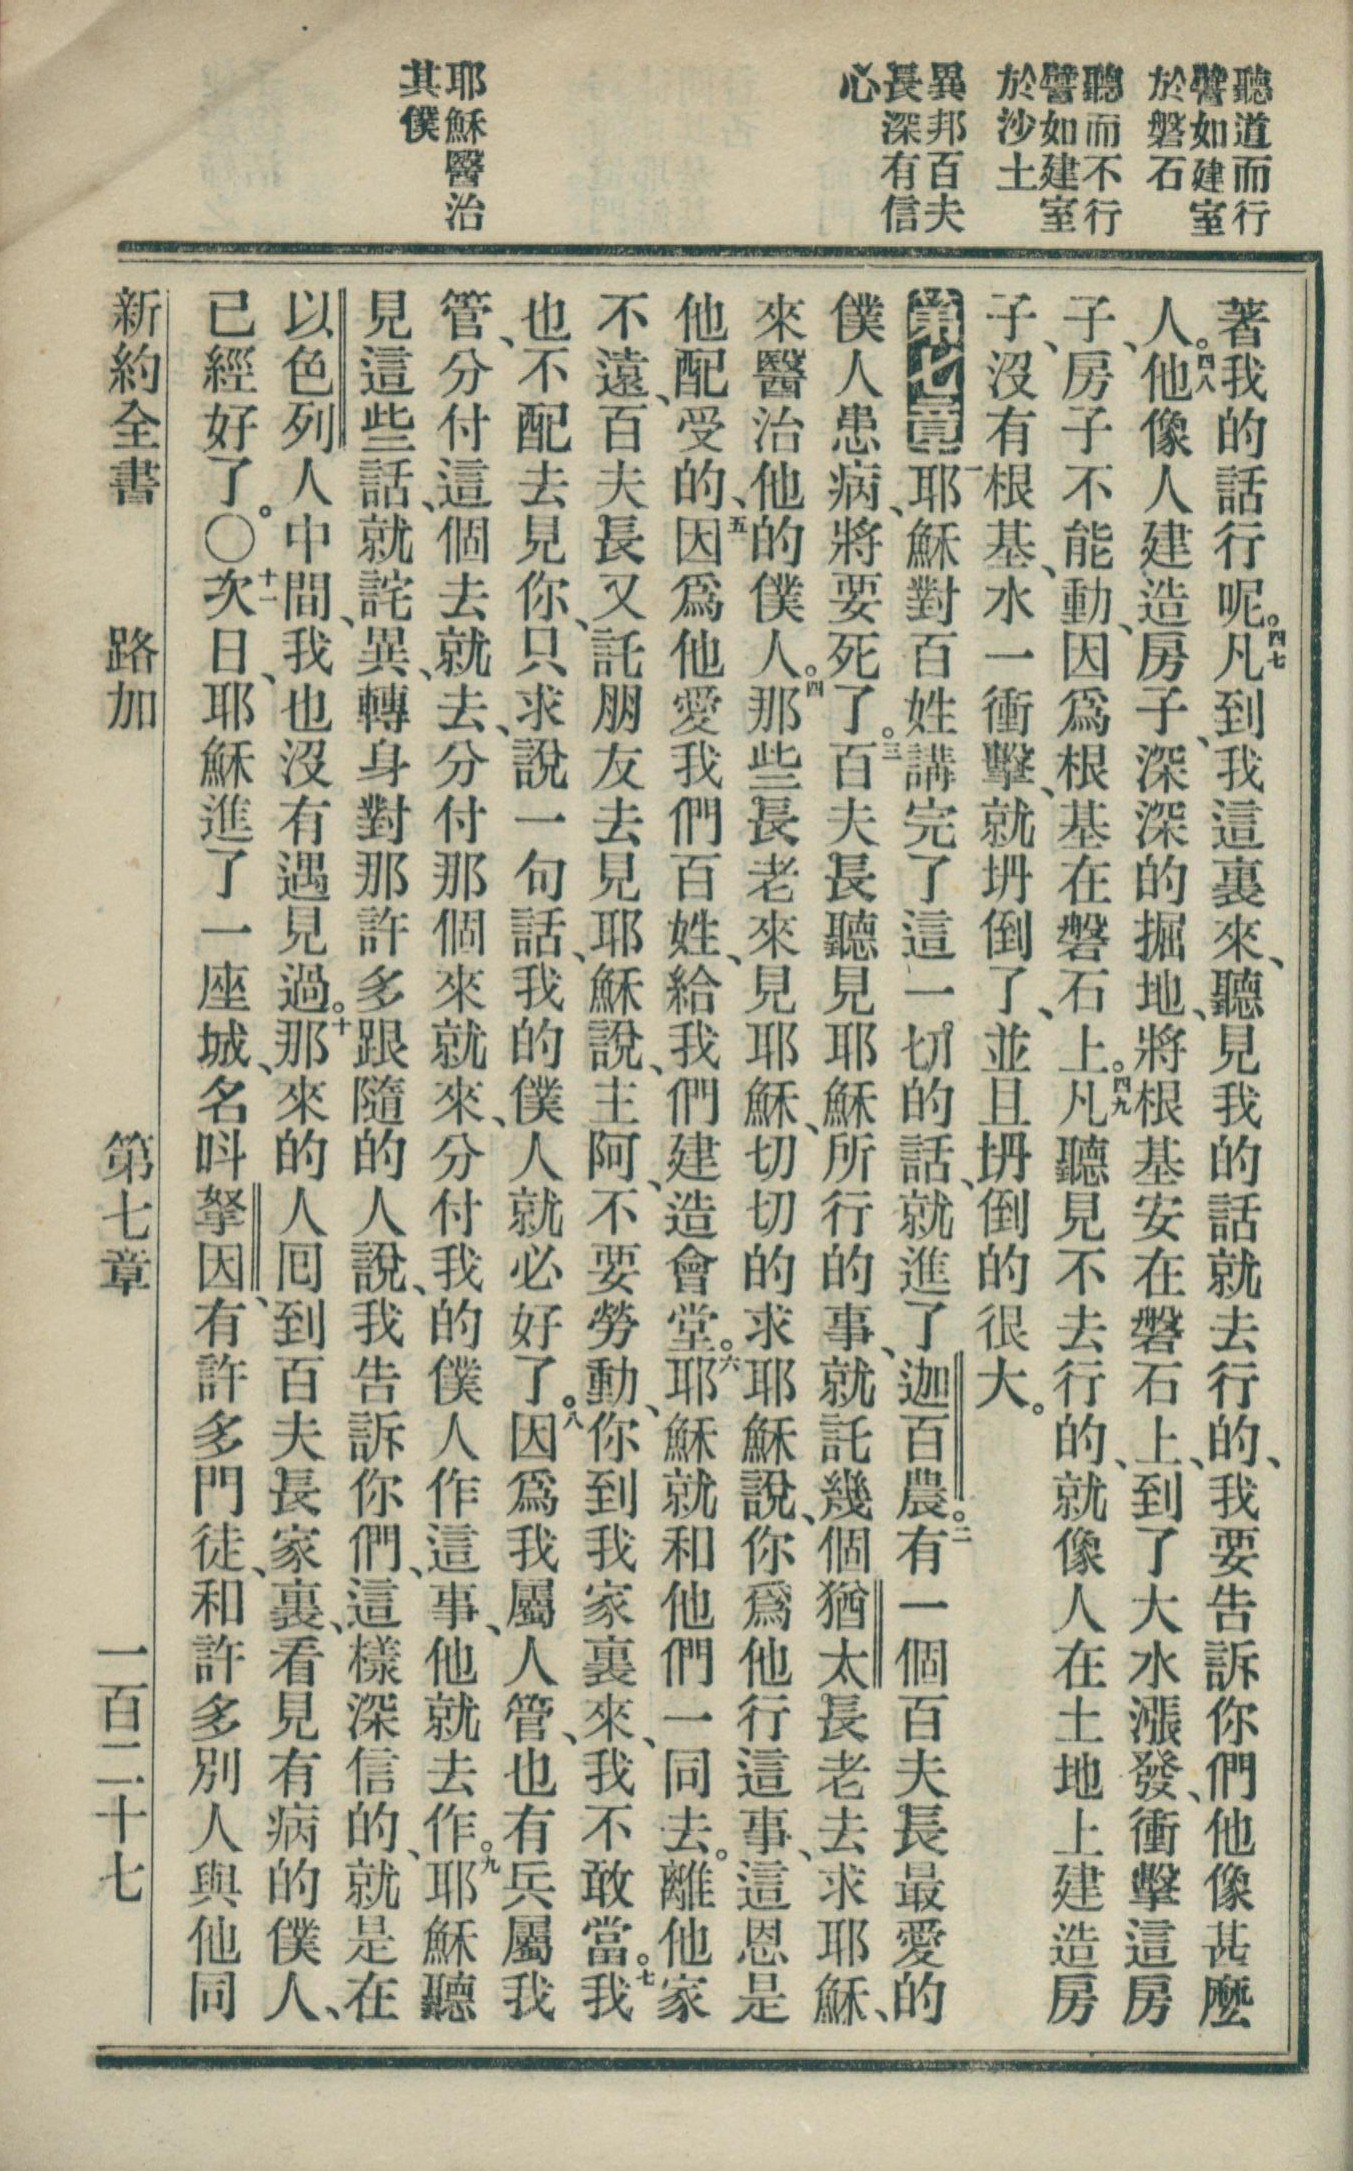 聽道而行
譬如建室
於磐石
聽而不行
譬如建室
於沙土
異邦百夫
長深有信
心
耶穌醫治
其僕
著我的話行呢。四七凡到我這裏來、聽見我的話就去行的、我要告訴你們他像甚麼
人。四八他像人建造房子、深深的掘地、將根基安在磐石上、到了大水漲發、衝擊這房
子、房子不能動、因爲根基在磐石上。四九凡聽見不去行的、就像人在土地上建造房
子、沒有根基、水一衝擊、就坍倒了、並且坍倒的很大。
第七章 一耶穌對百姓講完了這一切的話、就進了迦百農。二有一個百夫長最愛的
僕人患病、將要死了。三百夫長聽見耶穌所行的事、就託幾個猶太長老去求耶穌、
來醫治他的僕人。四那些長老來見耶穌、切切的求耶穌說、你爲他行這事、這恩是
他配受的、五因爲他愛我們百姓、給我們建造會堂。六耶穌就和他們一同去。離他家
不遠、百夫長又託朋友去見耶穌說、主阿、不要勞動、你到我家裏來、我不敢當。七我
也不配去見你、只求說一句話、我的僕人就必好了。八因爲我屬人管、也有兵屬我
管、分付這個去就去、分付那個來就來、分付我的僕人作這事、他就去作。九耶穌聽
見這些話、就詫異、轉身對那許多跟隨的人說、我告訴你們、這樣深信的、就是在
以色列人中間、我也沒有遇見過。十那來的人囘到百夫長家裏、看見有病的僕人、
已經好了。〇十一次日、耶穌進了一座城、名呌拏因、有許多門徒、和許多別人與他同
新約全書 路加 第七章 一百二十七